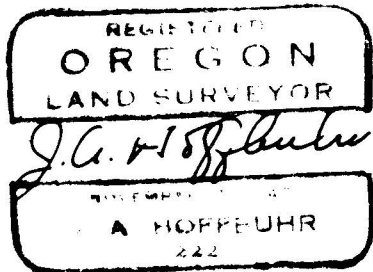 REGISTERED
OREGON
LAND SURVEYOR
J.A. Hoffbuhr
NOVEMBER
A HOFFBUHR
222